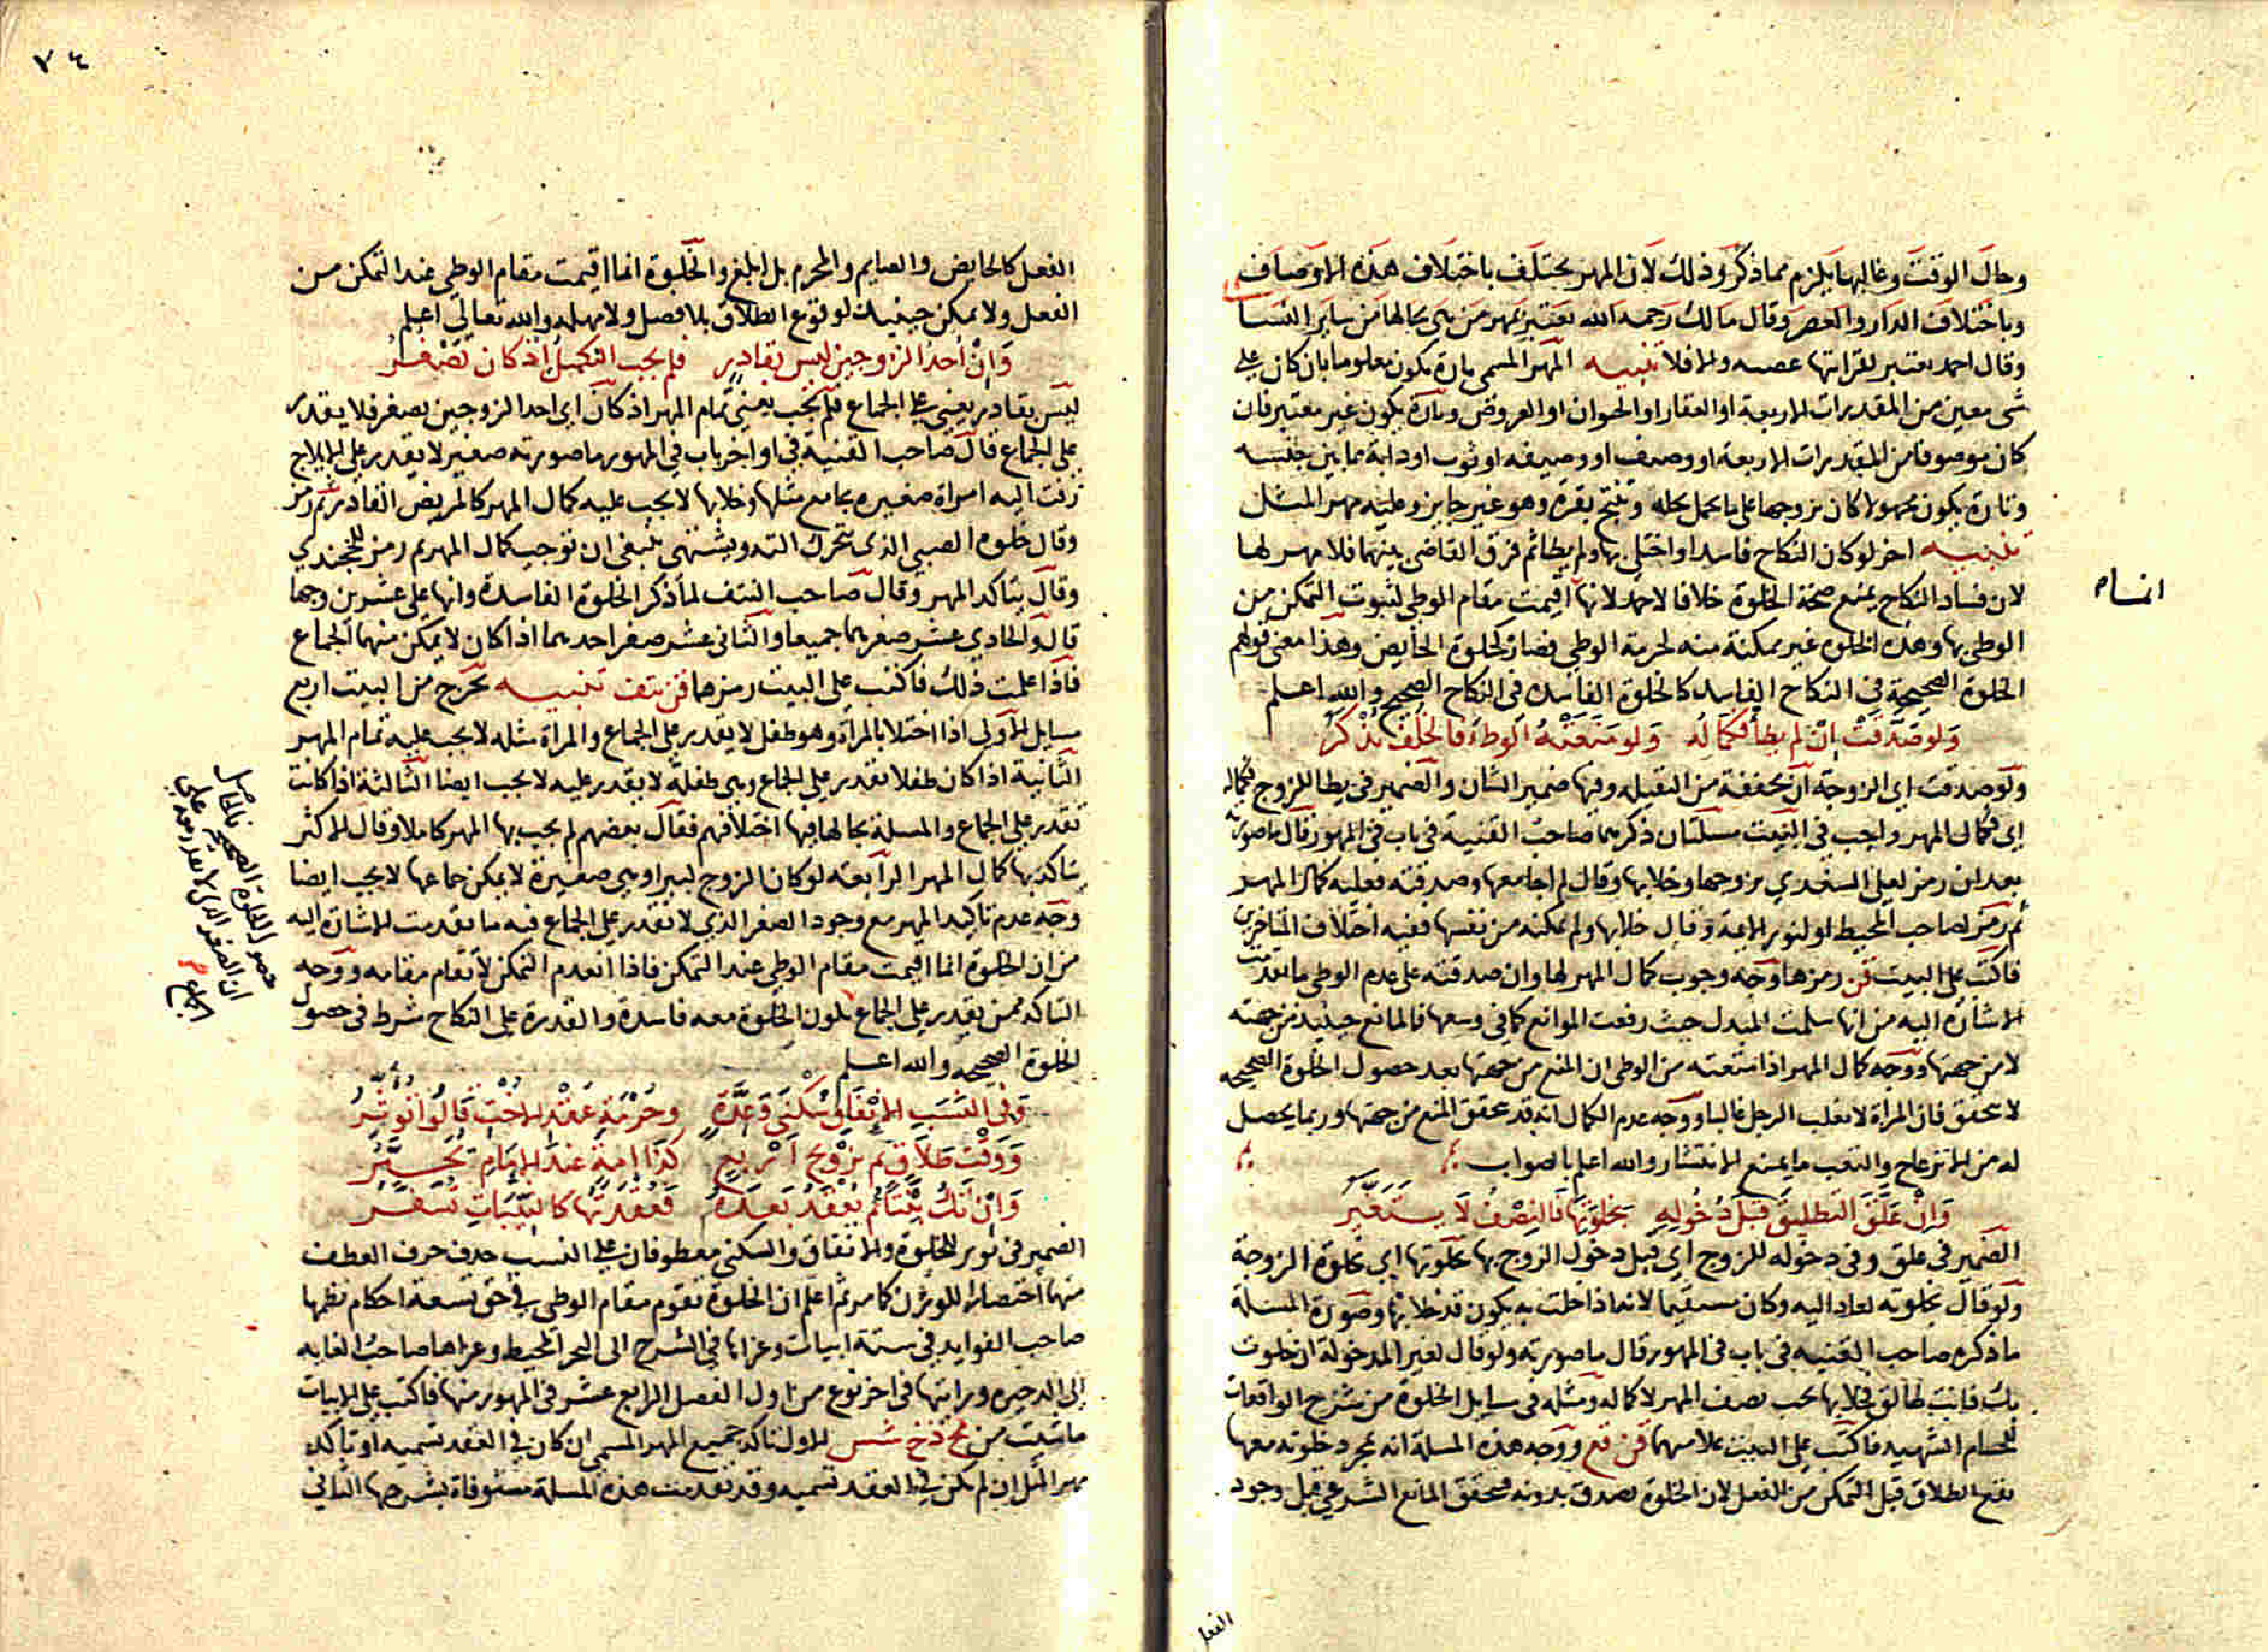 وحال الوقت وغالبها يلزم مما ذكر وذلك لان المهر يختلف باختلاف هذه الاوصاف
وباختلاف الدار والعصر وقال مالك رحمه الله يعتبر بمهر من هي بحالها من ساير النسا
وقال احمد يعتبر لقراتها عصبه والا فلا تنبيه المهر المسمى تارة يكون معلوما بان كان على
شى معين من المقدرات الاربعة او العقار او الحيوان او العروض وتارة يكون غير معتبر فان
كان موصوفا من المقدرات الاربعة او وصيف او وصيفه او ثوب او دابة مما بين جنسه
وتارة يكون مجهولا كان تزوجها على ما يحمل نخله وتنتج بقره وهو غير جايز وعليه مهر المثل
تنبيه اخر لو كان النكاح فاسدا واختلى بها ولم يطا ثم فرق القاضى بينهما فلا مهر لها
لان فساد النكاح يمنع صحة الخلوة خلافا لاحمد لانها اقيمت مقام الوطى لثبوت التمكن من
انما
الوطى بها وهذه الخلوه غير ممكنة منه لحرمة الوطى فصار كخلوة الحايض وهذا معنى قولهم
الخلوة الصحيحة فى النكاح الفاسد كالخلوة الفاسدة فى النكاح الصحيح والله اعلم
ولو صدقت ان لم يطأ فكماله ولو منعته الوطء فالخلف يذكر
ولو صدقت اى الزوجة ان مخففة من الثقيله وفيها ضمير الشان والضمير فى يطا للزوج فكماله
اى فكمال المهر واجب فى البيت مسئلتان ذكرهما صاحب القنية فى باب فى المهور فقال ما صورته
بعد ان رمز لعلى السغدي تزوجها وخلا بها وقال لم اجامعها وصدقته فعليه كمال المهر
ثم رمز لصاحب المحيط او لنور الايمة وقال خلا بها ولم تمكنه من نفسها ففيه اختلاف المتاخرين
فاكتب على البيت قن رمزها وجه وجوب كمال المهر لها وان صدقته على عدم الوطى ما تقدمت
الاشارة اليه من انها سلمت المبدل حيث رفعت الموانع كما فى وسعها فالمانع حينيد من جهته
لا من جهتها ووجه كمال المهر اذا منعته من الوطى ان المنع من جهتها بعد حصول الخلوة الصحيحه
لا يتحقق فان المرأة لا تغلب الرجل غالبا ووجه عدم الكمال انه قد تحقق المنع من جهتها وربما يحصل
له من الانزعاج والتعب ما يمنع الانتشار والله اعلم بالصواب
وان علق التطليق قبل دخوله بخلوتها فالنصف لا يتغير
الضمير فى علق وفى دخوله للزوج اى قبل دخول الزوج بها بخلوتها اى بخلوة الزوجة
ولو قال بخلوته لعاد اليه وكان مستقيما لانه اذا خلت به يكون قد خلا بها وصورة المسئلة
ما ذكره صاحب القنيه فى باب فى المهور قال ما صورته ولو قال لغير المدخولة ان خلوت
بك فانت طالق فخلا بها يجب نصف المهر لا كماله ومثله فى مسايل الخلوة من شرح الواقعات
للحسام الشهيد فاكتب على البيت علامتهما قن قع ووجه هذه المسلة انه بمجرد خلوته معها
يقع الطلاق قبل التمكن من الفعل لان الخلوة تصدق بدونه فتحقق المانع الشرعى قبل وجود
الفعل
٧٤
الفعل كالحايض والصايم والمحرم بل ابلغ والخلوة انما اقيمت مقام الوطى عند التمكن من
الفعل ولا يمكن حينيذ لوقوع الطلاق بلا فصل ولا مهله والله تعالى اعلم
وان احد الزوجين ليس بقادر فلم يجب التكميل اذ كان يصغر
ليس بقادر يعنى على الجماع فلم يجب يعنى تمام المهر اذ كان اى احد الزوجين يصغر فلا يقدر
على الجماع قال صاحب القنية فى اواخر باب فى المهور ما صورته صغير لا يقدر على الايلاج
زفت اليه امراة صغيره يجامع مثلها وخلا بها لا يجب عليه كمال المهر كالمريض الغادر ثم رمز
وقال خلوة الصبى الذى تتحرك التة ويشتهى ينبغى ان توجب كمال المهر ثم رمز للخجندي
وقال يتاكد المهر وقال صاحب النتف لما ذكر الخلوة الفاسدة وانها على عشرين وجها
قال والحادي عشر صغرهما جميعا والثانى عشر صغر احدهما اذا كان لا يمكن منهما الجماع
فاذا علمت ذلك فاكتب على البيت رمزهما قن نتف تنبيه تخرج من البيت اربع
مسايل الاولى اذا اختلا بالمراة وهو طفل لا يقدر على الجماع والمراة مثله لا يجب عليه تمام المهر
الثانية اذا كان طفلا يقدر على الجماع وهى طفلة لا يقدر عليه لا يجب ايضا الثالثة اذا كانت
تقدر على الجماع والمسلة بحالها فيها اختلافهم فقال بعضهم لم يجب بها المهر كاملا وقال الاكثر
يتاكد بها كمال المهر الرابعة لو كان الزوج كبيرا وهى صغيرة لا يمكن جماعها لا يجب ايضا
وجه عدم تاكيد المهر مع وجود الصغر الذي لا يقدر على الجماع فيه ما تقدمت الاشارة اليه
من ان الخلوة انما اقيمت مقام الوطى عند التمكن فاذا انعدم التمكن لا تقام مقامه ووجه
التاكد ممن يقدر على الجماع تكون الخلوة معه فاسدة والقدرة على النكاح شرط فى حصول
الخلوة الصحيحه والله اعلم
فالحاصل
حصول الخلوة الصحيحة على
ان الصغر الذى لا يقدر معه على
الجماع
وفى النسب الانفاق سكنى وعدة وحرمة عقد الاخت قالوا توثر
ووقت طلاق ثم تزويج اربع كذا امة عند الامام تحير
وان تك يتما ثم يعقد بعده فعقدتها كالثيبات تسفر
الضمير فى توثر للخلوة والانفاق والسكنى معطوفان على النسب حذف حرف العطف
منهما اختصارا للوزن كما مر ثم اعلم ان الخلوة تقوم مقام الوطى فى حق تسعة احكام نظمها
صاحب الفوايد فى ستة ابيات وعزاها فى الشرح الى البحر المحيط وعزاها صاحب الغايه
الى الدخيره ورايتها فى اخر نوع من اول الفصل الرابع عشر فى المهور منها فاكتب على الابيات
ما شيت من مح ذخ شس الاول تاكد جميع المهر المسمى ان كان فى العقد تسميه او تاكد
مهر المثل ان لم يكن فى العقد تسميه وقد تقدمت هذه المسلة مستوفاة بشرحها الثانى